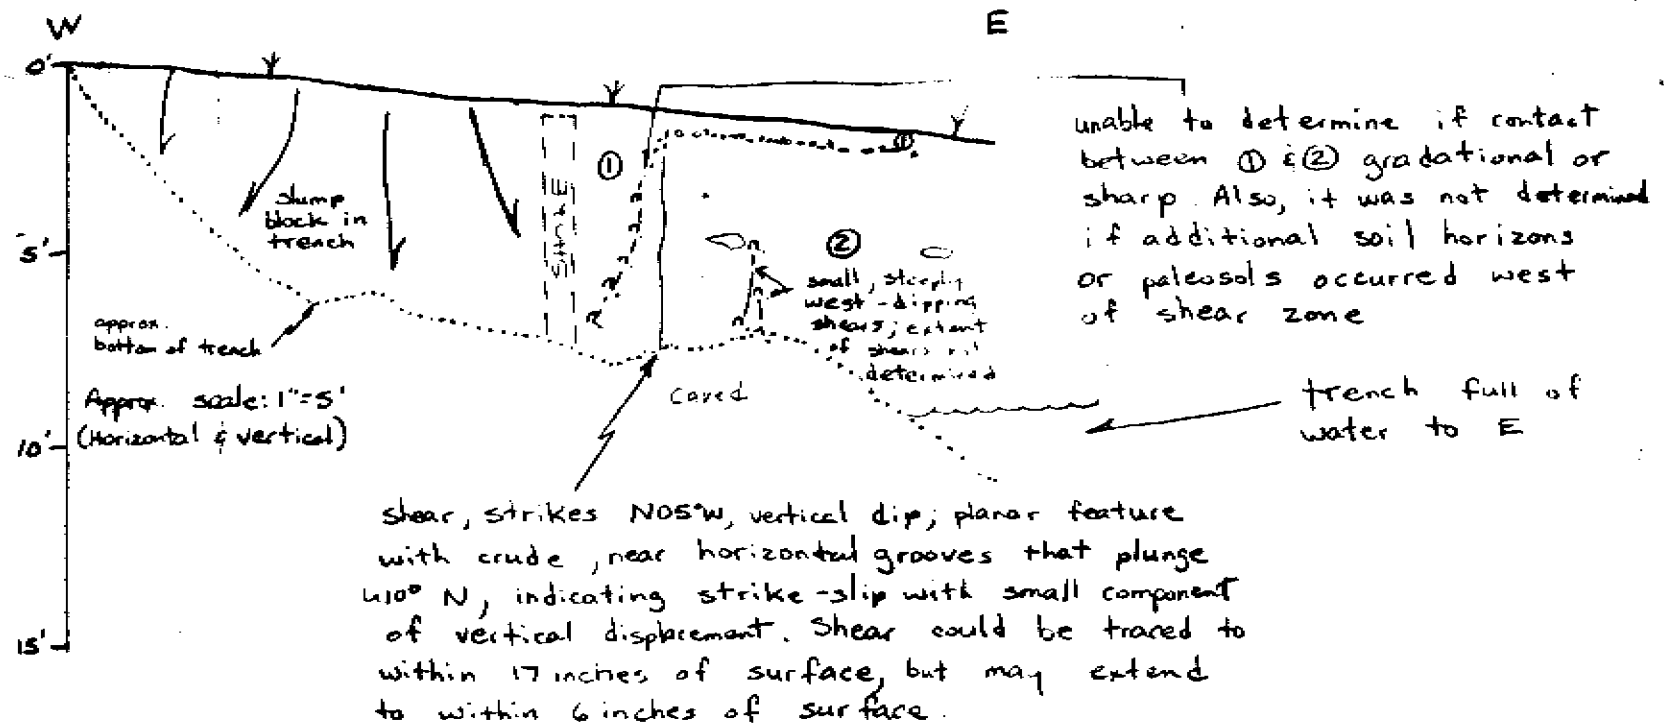 W
E
0'
5'
10'
15'
slump
block in
trench
approx.
bottom of trench
Approx. scale: 1"=5'
(Horizontal & vertical)
①
①
②
small, steeply
west-dipping
shears; extent
of shears not
determined
Caved
unable to determine if contact
between ① & ② gradational or
sharp. Also, it was not determined
if additional soil horizons
or paleosols occurred west
of shear zone
trench full of
water to E
shear, strikes N05°W, vertical dip; planar feature
with crude, near horizontal grooves that plunge
10° N, indicating strike-slip with small component
of vertical displacement. Shear could be traced to
within 17 inches of surface, but may extend
to within 6 inches of surface.